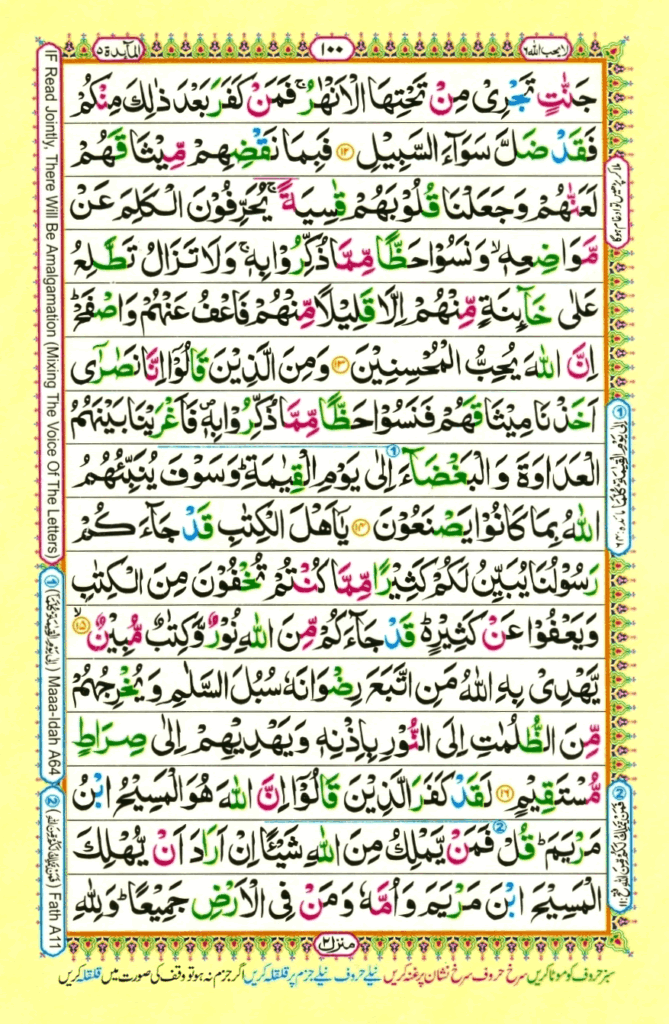 لا یحب الله ٦
١٠٠
المآىِٕدة ٥
جَنّٰتٍ تَجْرِیْ مِنْ تَحْتِهَا الْاَنْهٰرُ ۚ فَمَنْ كَفَرَ بَعْدَ ذٰلِكَ مِنْكُمْ
فَقَدْ ضَلَّ سَوَآءَ السَّبِیْلِ ﴿۱۲﴾ فَبِمَا نَقْضِهِمْ مِّیْثَاقَهُمْ
لَعَنّٰهُمْ وَجَعَلْنَا قُلُوْبَهُمْ قٰسِیَةً ۚ یُحَرِّفُوْنَ الْكَلِمَ عَنْ
مَّوَاضِعِهٖ ۙ وَنَسُوْا حَظًّا مِّمَّا ذُكِّرُوْا بِهٖ ۚ وَلَا تَزَالُ تَطَّلِعُ
عَلٰی خَآىِٕنَةٍ مِّنْهُمْ اِلَّا قَلِیْلًا مِّنْهُمْ فَاعْفُ عَنْهُمْ وَاصْفَحْ ؕ
اِنَّ اللّٰهَ یُحِبُّ الْمُحْسِنِیْنَ ﴿۱۳﴾ وَمِنَ الَّذِیْنَ قَالُوْۤا اِنَّا نَصٰرٰۤی
اَخَذْنَا مِیْثَاقَهُمْ فَنَسُوْا حَظًّا مِّمَّا ذُكِّرُوْا بِهٖ ۪ فَاَغْرَیْنَا بَیْنَهُمُ
الْعَدَاوَةَ وَالْبَغْضَآءَ ① اِلٰی یَوْمِ الْقِیٰمَةِ ؕ وَسَوْفَ یُنَبِّئُهُمُ
اللّٰهُ بِمَا كَانُوْا یَصْنَعُوْنَ ﴿۱۴﴾ یٰۤاَهْلَ الْكِتٰبِ قَدْ جَآءَكُمْ
رَسُوْلُنَا یُبَیِّنُ لَكُمْ كَثِیْرًا مِّمَّا كُنْتُمْ تُخْفُوْنَ مِنَ الْكِتٰبِ
وَیَعْفُوْا عَنْ كَثِیْرٍ ؕ۬ قَدْ جَآءَكُمْ مِّنَ اللّٰهِ نُوْرٌ وَّكِتٰبٌ مُّبِیْنٌ ﴿ۙ۱۵﴾
یَّهْدِیْ بِهِ اللّٰهُ مَنِ اتَّبَعَ رِضْوَانَهٗ سُبُلَ السَّلٰمِ وَیُخْرِجُهُمْ
مِّنَ الظُّلُمٰتِ اِلَی النُّوْرِ بِاِذْنِهٖ وَیَهْدِیْهِمْ اِلٰی صِرَاطٍ
مُّسْتَقِیْمٍ ﴿۱۶﴾ لَقَدْ كَفَرَ الَّذِیْنَ قَالُوْۤا اِنَّ اللّٰهَ هُوَ الْمَسِیْحُ ابْنُ
مَرْیَمَ ؕ قُلْ ② فَمَنْ یَّمْلِكُ مِنَ اللّٰهِ شَیْـًٔا اِنْ اَرَادَ اَنْ یُّهْلِكَ
الْمَسِیْحَ ابْنَ مَرْیَمَ وَاُمَّهٗ وَمَنْ فِی الْاَرْضِ جَمِیْعًا ؕ وَلِلّٰهِ
منزل ٢
سبز حروف کو موٹا کریں سرخ حروف سرخ نشان پر غنہ کریں نیلے حروف نیلے جزم پر قلقلہ کریں اگر جزم نہ ہو تو وقف کی صورت میں قلقلہ کریں
IF Read Jointly, There Will Be Amalgamation (Mixing The Voice Of The Letters)
① ( اِلٰی یَوْمِ الْقِیٰمَةِ كُلَّمَاۤ ) Maaa-Idah A64
② ( فَمَنْ یَّمْلِكُ لَكُمْ مِّنَ اللّٰهِ ) Fath A11
ملا کر پڑھیں تو ادغام ہوگا
① اِلٰی یَوْمِ الْقِیٰمَةِ كُلَّمَاۤ مائدہ
② فَمَنْ یَّمْلِكُ لَكُمْ مِّنَ اللّٰهِ